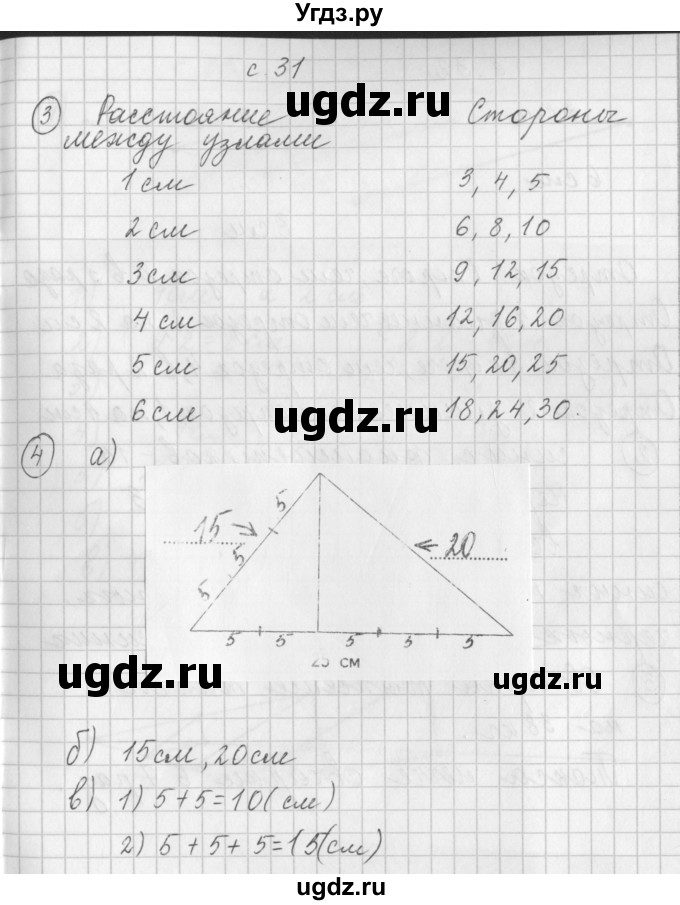 Угдз.ру
с. 31
ugdz.ru
3 Расстояние Стороны
между узлами
1 см 3, 4, 5
2 см 6, 8, 10
3 см 9, 12, 15
ugdz.ru
4 см 12, 16, 20
5 см 15, 20, 25
6 см 18, 24, 30.
ugdz.ru
4 а)
5
15 20
5
ugdz.ru
5
5 5 5 5 5
25 см
ugdz.ru
ugdz.ru
б) 15 см, 20 см
в) 1) 5 + 5 = 10 (см)
2) 5 + 5 + 5 = 15 (см)
ugdz.ru
ugdz.ru